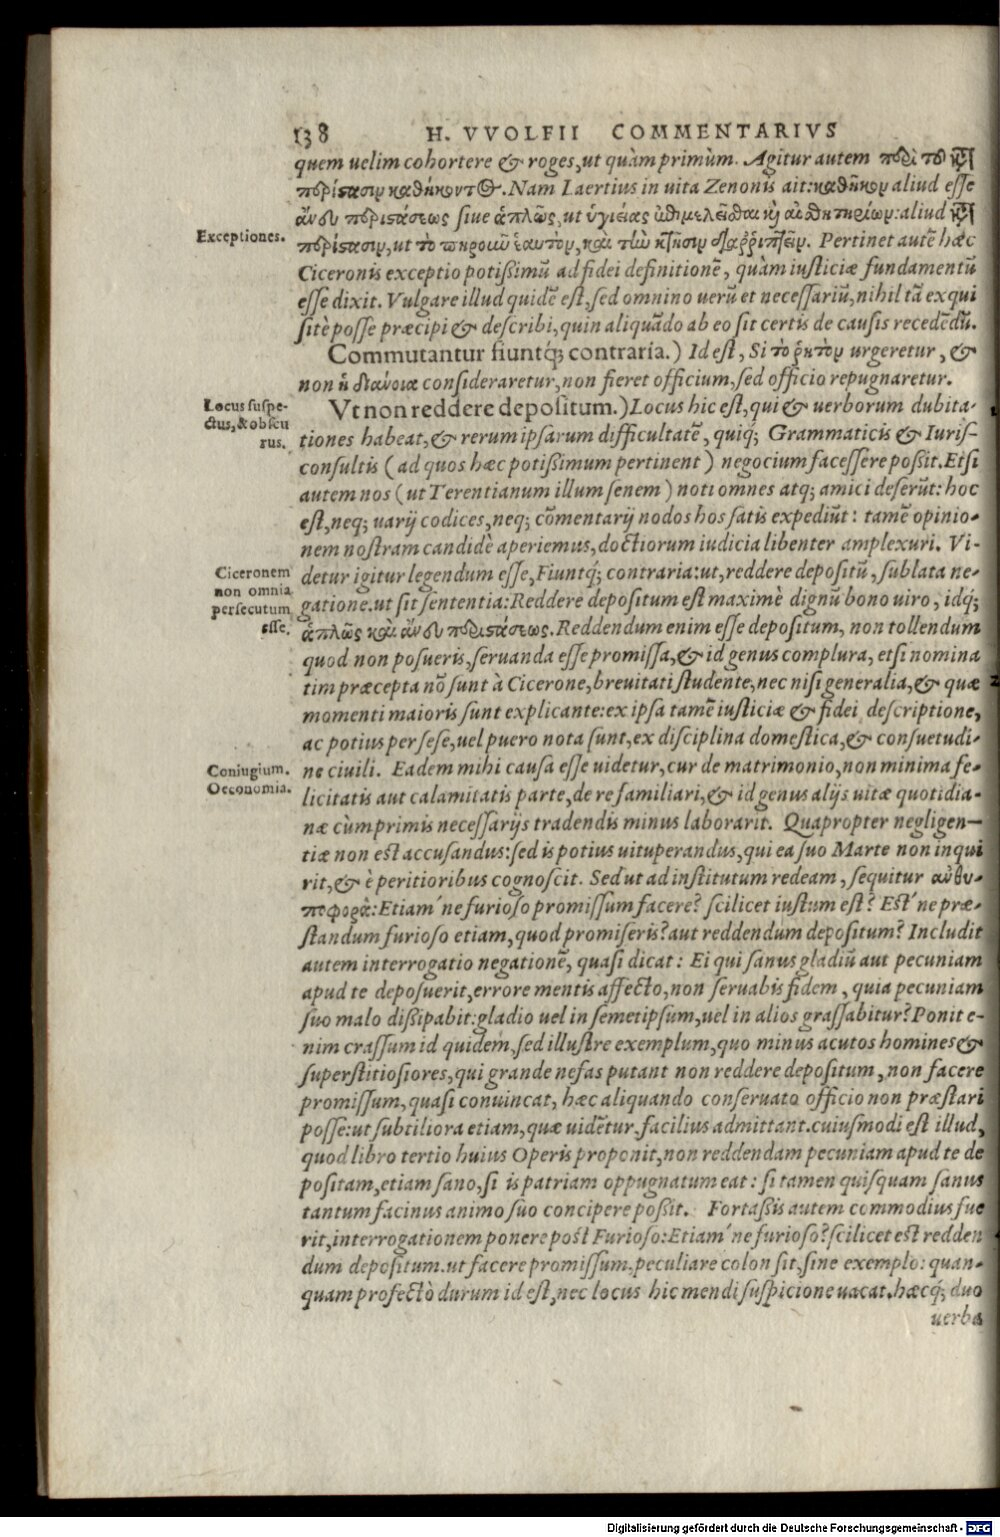 138 H. VVOLFII COMMENTARIVS
quem uelim cohortere & roges, ut quàm primùm. Agitur autem περὶ τοῦ κατὰ
περίστασιν καθήκοντος. Nam Laertius in uita Zenonis ait: καθῆκον aliud esse
ἄνευ περιστάσεως siue ἁπλῶς, ut ὑγιείας ἐπιμελεῖσθαι καὶ αἰσθητηρίων: aliud κατὰ
Exceptiones.
περίστασιν, ut τὸ πηροιοῦν ἑαυτὸν, καὶ τὴν κτῆσιν διαῤῥιπτεῖν. Pertinet autē hæc
Ciceronis exceptio potißimū ad fidei definitionē, quàm iusticiæ fundamentū
esse dixit. Vulgare illud quidē est, sed omnino uerū et necessariū, nihil tā exqui
sitè posse præcipi & describi, quin aliquādo ab eo sit certis de causis recedēdū.
Commutantur fiuntq́; contraria.) Id est, Si τὸ ῥητὸν urgeretur, &
non ἡ διάνοια consideraretur, non fieret officium, sed officio repugnaretur.
Locus suspe-
ctus, & obscu
rus.
Vt non reddere depositum.) Locus hic est, qui & uerborum dubita-
tiones habeat, & rerum ipsarum difficultatē, quiq́; Grammaticis & Iuris-
consultis (ad quos hæc potißimum pertinent) negocium facessere poßit. Etsi
autem nos (ut Terentianum illum senem) noti omnes atq; amici deserūt: hoc
est, neq; uarij codices, neq; cōmentarij nodos hos satis expediūt: tamē opinio-
nem nostram candidè aperiemus, doctiorum iudicia libenter amplexuri. Vi-
Ciceronem
non omnia
persecutum
esse.
detur igitur legendum esse, Fiuntq́; contraria: ut, reddere depositū, sublata ne-
gatione. ut sit sententia: Reddere depositum est maximè dignū bono uiro, idq́;
ἁπλῶς καὶ ἄνευ περιστάσεως. Reddendum enim esse depositum, non tollendum
quod non posueris, seruanda esse promissa, & id genus complura, etsi nomina
tim præcepta nō sunt à Cicerone, breuitati studente, nec nisi generalia, & quæ
momenti maioris sunt explicante: ex ipsa tamē iusticiæ & fidei descriptione,
ac potius per sese, uel puero nota sunt, ex disciplina domestica, & consuetudi-
Coniugium.
Oeconomia.
ne ciuili. Eadem mihi causa esse uidetur, cur de matrimonio, non minima fe-
licitatis aut calamitatis parte, de re familiari, & id genus alijs uitæ quotidia-
næ cùmprimis necessarijs tradendis minus laborarit. Quapropter negligen-
tiæ non est accusandus: sed is potius uituperandus, qui ea suo Marte non inqui
rit, & è peritioribus cognoscit. Sed ut ad institutum redeam, sequitur ἀνθυ-
ποφορὰ: Etiam´ne furioso promissum facere? scilicet iustum est? Est´ne præ-
standum furioso etiam, quod promiseris? aut reddendum depositum? Includit
autem interrogatio negationē, quasi dicat: Ei qui sanus gladiū aut pecuniam
apud te deposuerit, errore mentis affecto, non seruabis fidem, quia pecuniam
suo malo dißipabit: gladio uel in semetipsum, uel in alios grassabitur? Ponit e-
nim crassum id quidem, sed illustre exemplum, quo minus acutos homines &
superstitiosiores, qui grande nefas putant non reddere depositum, non facere
promissum, quasi conuincat, hæc aliquando conseruato officio non præstari
posse: ut subtiliora etiam, quæ uidētur, facilius admittant. cuiusmodi est illud,
quod libro tertio huius Operis proponit, non reddendam pecuniam apud te de
positam, etiam sano, si is patriam oppugnatum eat: si tamen quisquam sanus
tantum facinus animo suo concipere poßit. Fortaßis autem commodius fue
rit, interrogationem ponere post Furioso: Etiam´ne furioso? scilicet est redden
dum depositum. ut facere promissum. peculiare colon sit, sine exemplo: quan-
quam profectò durum id est, nec locus hic mendi suspicione uacat. hæcq́; duo
uerba
Digitalisierung gefördert durch die Deutsche Forschungsgemeinschaft - DFG